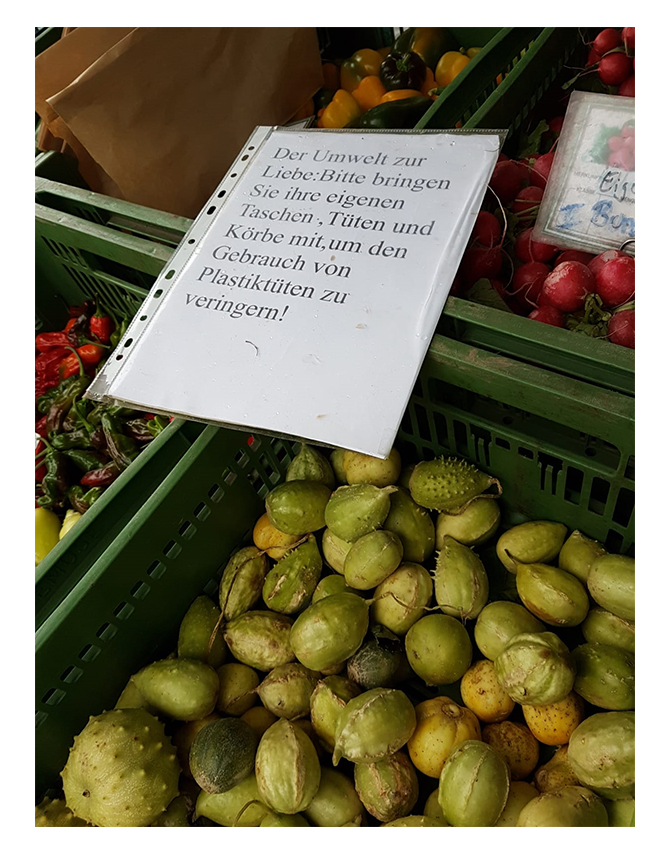 Der Umwelt zur
Liebe:Bitte bringen
Sie ihre eigenen
Taschen , Tüten und
Körbe mit,um den
Gebrauch von
Plastiktüten zu
veringern!